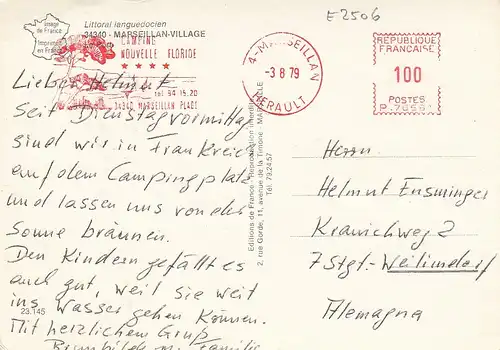 E2506
Image de France
Imprimé en France
Littoral languedocien
34340 - MARSEILLAN-VILLAGE
CAMPING
NOUVELLE FLORIDE
★ ★ ★ ★
tél. 94.15.20
34340 MARSEILLAN PLAGE
34-MARSEILLAN
-3 8 79
HERAULT
REPUBLIQUE
FRANCAISE
100
POSTES
Lieber Helmut
Seit Dienstagvormittag
sind wir in Frankreich
auf dem Campingplatz
und lassen uns von der
Sonne bräunen.
Den Kindern gefällt es
auch gut, weil sie weit
ins Wasser gehen können.
Mit herzlichem Gruß
Brunhilde m. Familie
23.145
Editions de France Reproduction interdite
2, rue Gorde, 11, avenue de la Timone - MARSEILLE
Tél. 79.24.57
Herrn
Helmut Ensminger
Kranichweg 2
7 Stgt.-Weilimdorf
Alemagna